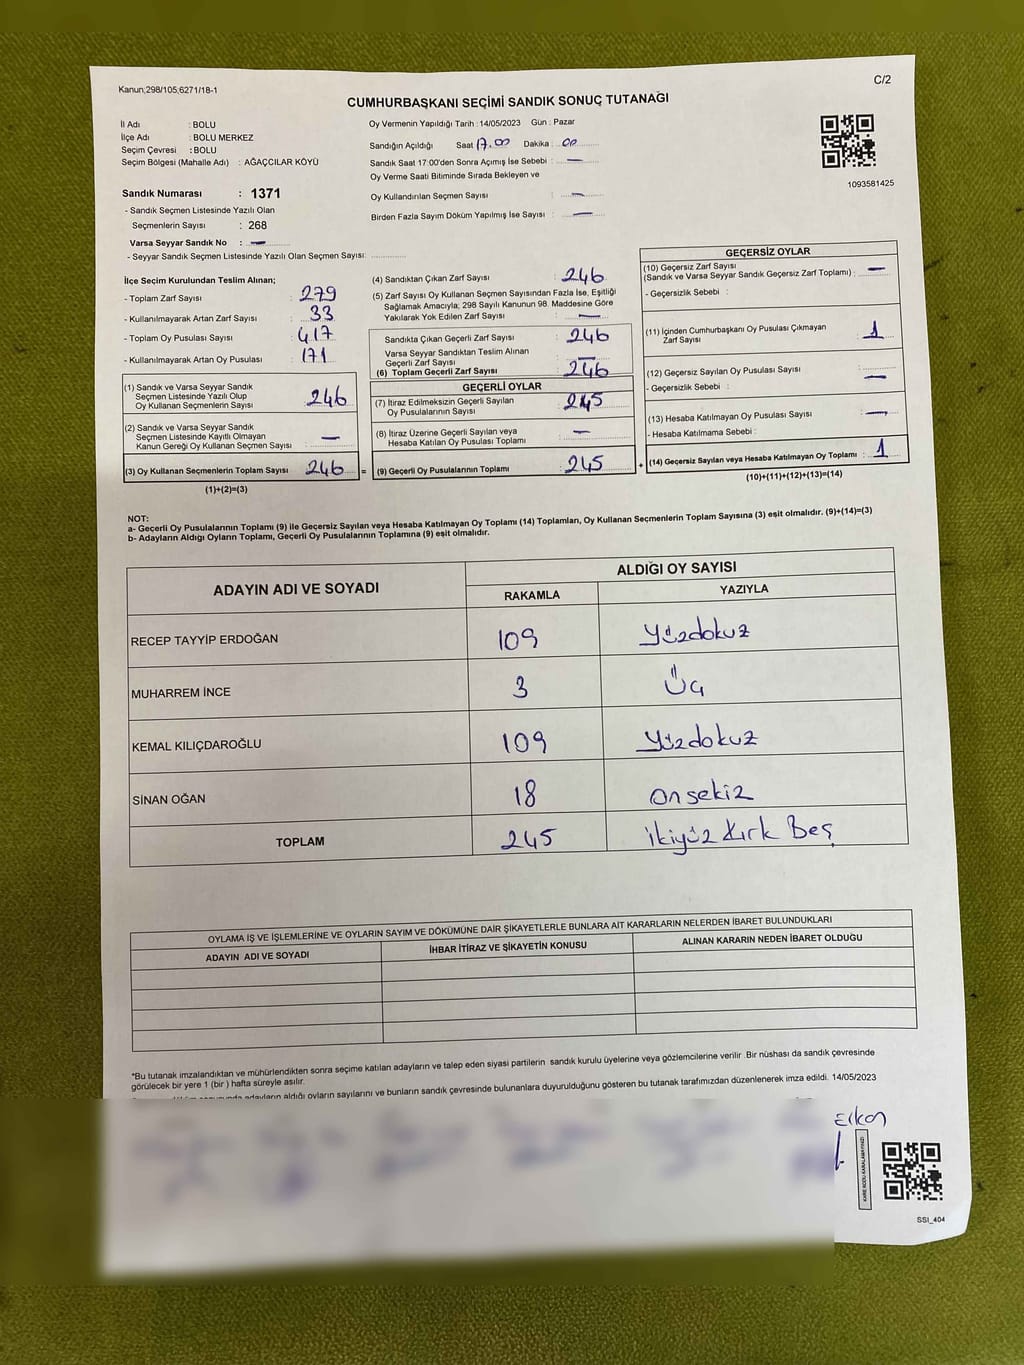 Kanun;298/105;6271/18-1
C/2
CUMHURBAŞKANI SEÇİMİ SANDIK SONUÇ TUTANAĞI
İl Adı : BOLU
İlçe Adı : BOLU MERKEZ
Seçim Çevresi : BOLU
Seçim Bölgesi (Mahalle Adı) : AĞAÇCILAR KÖYÜ
Oy Vermenin Yapıldığı Tarih : 14/05/2023 Gün : Pazar
Sandığın Açıldığı Saat 17.00 Dakika : 00
Sandık Saat 17:00'den Sonra Açımış İse Sebebi : —
Oy Verme Saati Bitiminde Sırada Bekleyen ve
Oy Kullandırılan Seçmen Sayısı : —
Birden Fazla Sayım Döküm Yapılmış İse Sayısı : —
1093581425
Sandık Numarası : 1371
- Sandık Seçmen Listesinde Yazılı Olan
Seçmenlerin Sayısı : 268
Varsa Seyyar Sandık No : —
- Seyyar Sandık Seçmen Listesinde Yazılı Olan Seçmen Sayısı:
İlçe Seçim Kurulundan Teslim Alınan;
- Toplam Zarf Sayısı : 279
- Kullanılmayarak Artan Zarf Sayısı : 33
- Toplam Oy Pusulası Sayısı : 417
- Kullanılmayarak Artan Oy Pusulası : 171
(1) Sandık ve Varsa Seyyar Sandık
Seçmen Listesinde Yazılı Olup
Oy Kullanan Seçmenlerin Sayısı : 246
(2) Sandık ve Varsa Seyyar Sandık
Seçmen Listesinde Kayıtlı Olmayan
Kanun Gereği Oy Kullanan Seçmen Sayısı : —
(3) Oy Kullanan Seçmenlerin Toplam Sayısı : 246 =
(1)+(2)=(3)
(4) Sandıktan Çıkan Zarf Sayısı : 246
(5) Zarf Sayısı Oy Kullanan Seçmen Sayısından Fazla İse, Eşitliği
Sağlamak Amacıyla; 298 Sayılı Kanunun 98. Maddesine Göre
Yakılarak Yok Edilen Zarf Sayısı : —
Sandıkta Çıkan Geçerli Zarf Sayısı : 246
Varsa Seyyar Sandıktan Teslim Alınan
Geçerli Zarf Sayısı : —
(6) Toplam Geçerli Zarf Sayısı : 246
GEÇERLİ OYLAR
(7) İtiraz Edilmeksizin Geçerli Sayılan
Oy Pusulalarının Sayısı : 245
(8) İtiraz Üzerine Geçerli Sayılan veya
Hesaba Katılan Oy Pusulası Toplamı : —
(9) Geçerli Oy Pusulalarının Toplamı : 245 +
GEÇERSİZ OYLAR
(10) Geçersiz Zarf Sayısı
(Sandık ve Varsa Seyyar Sandık Geçersiz Zarf Toplamı) : —
- Geçersizlik Sebebi :
(11) İçinden Cumhurbaşkanı Oy Pusulası Çıkmayan
Zarf Sayısı : 1
(12) Geçersiz Sayılan Oy Pusulası Sayısı : —
- Geçersizlik Sebebi :
(13) Hesaba Katılmayan Oy Pusulası Sayısı : —
- Hesaba Katılmama Sebebi :
(14) Geçersiz Sayılan veya Hesaba Katılmayan Oy Toplamı : 1
(10)+(11)+(12)+(13)=(14)
NOT:
a- Geçerli Oy Pusulalarının Toplamı (9) ile Geçersiz Sayılan veya Hesaba Katılmayan Oy Toplamı (14) Toplamları, Oy Kullanan Seçmenlerin Toplam Sayısına (3) eşit olmalıdır. (9)+(14)=(3)
b- Adayların Aldığı Oyların Toplamı, Geçerli Oy Pusulalarının Toplamına (9) eşit olmalıdır.
ADAYIN ADI VE SOYADI ALDIĞI OY SAYISI
RAKAMLA YAZIYLA
RECEP TAYYİP ERDOĞAN 109 Yüzdokuz
MUHARREM İNCE 3 Üç
KEMAL KILIÇDAROĞLU 109 Yüzdokuz
SİNAN OĞAN 18 onsekiz
TOPLAM 245 ikiyüz Kırk Beş
OYLAMA İŞ VE İŞLEMLERİNE VE OYLARIN SAYIM VE DÖKÜMÜNE DAİR ŞİKAYETLERLE BUNLARA AİT KARARLARIN NELERDEN İBARET BULUNDUKLARI
ADAYIN ADI VE SOYADI İHBAR İTİRAZ VE ŞİKAYETİN KONUSU ALINAN KARARIN NEDEN İBARET OLDUĞU
*Bu tutanak imzalandıktan ve mühürlendikten sonra seçime katılan adayların ve talep eden siyasi partilerin sandık kurulu üyelerine veya gözlemcilerine verilir. Bir nüshası da sandık çevresinde
görülecek bir yere 1 (bir) hafta süreyle asılır.
adayların aldığı oyların sayılarını ve bunların sandık çevresinde bulunanlara duyurulduğunu gösteren bu tutanak tarafımızdan düzenlenerek imza edildi. 14/05/2023
SSI_404